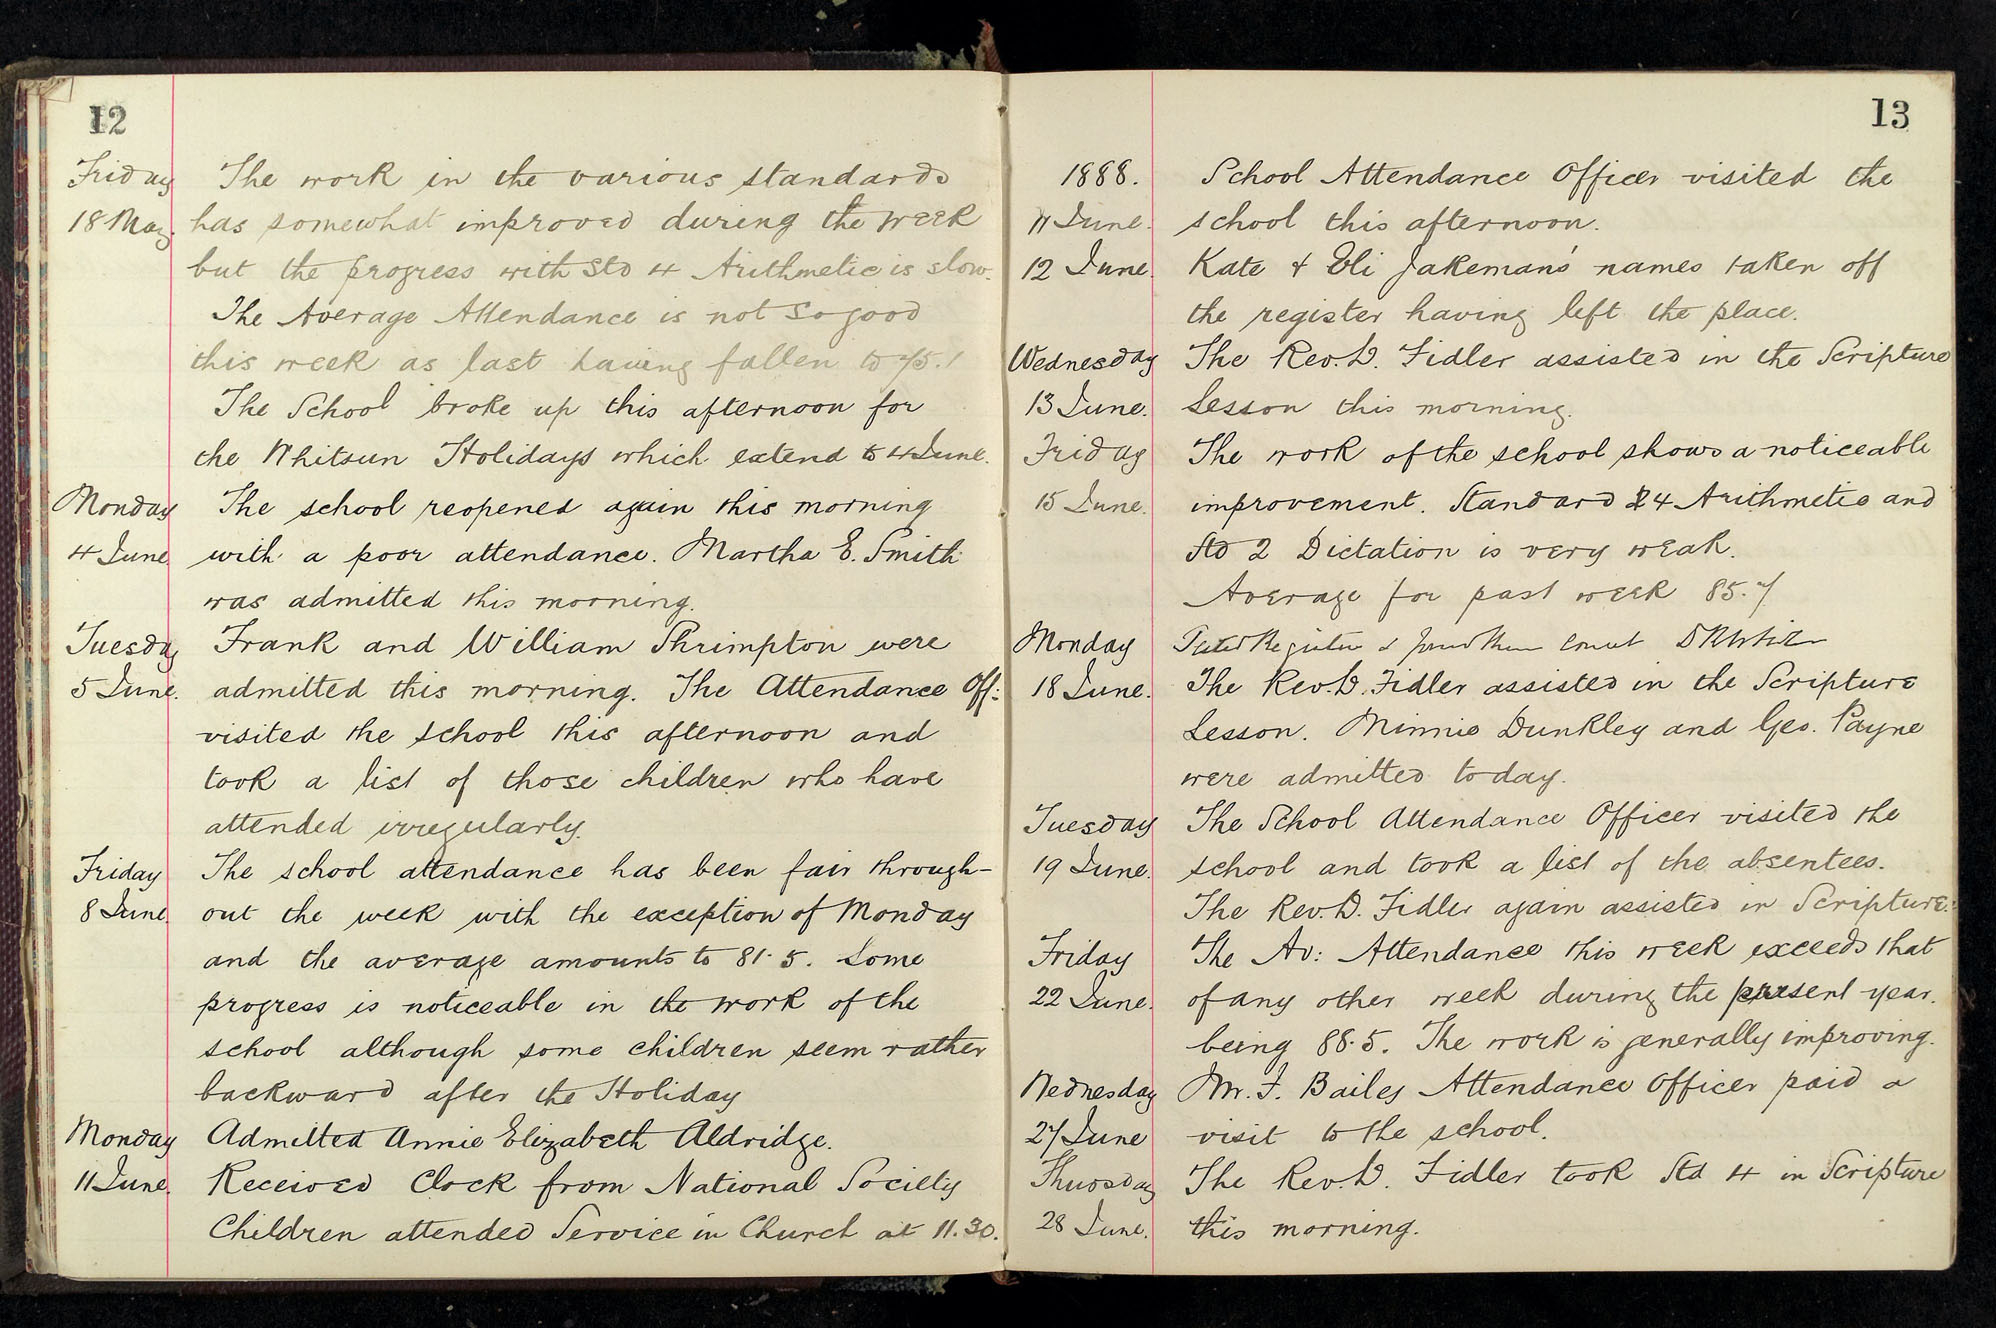 12
Friday The work in the various standards
18 May. has somewhat improved during the week
but the progress with Std 4 Arithmetic is slow.
The Average Attendance is not so good
this week as last having fallen to 75.1
The School broke up this afternoon for
the Whitsun Holidays which extend to 4 June.
Monday The school reopened again this morning
4 June with a poor attendance. Martha E. Smith
was admitted this morning.
Tuesday Frank and William Shrimpton were
5 June. admitted this morning. The Attendance Off:
visited the school this afternoon and
took a list of those children who have
attended irregularly.
Friday The school attendance has been fair through-
8 June out the week with the exception of Monday
and the average amounts to 81.5. Some
progress is noticeable in the work of the
school although some children seem rather
backward after the Holiday
Monday Admitted Annie Elizabeth Aldridge.
11 June. Received Clock from National Society
Children attended Service in Church at 11.30.
13
1888. School Attendance Officer visited the
11 June. school this afternoon.
12 June. Kate & Eli Jakeman's names taken off
the register having left the place.
Wednesday The Rev. D. Fidler assisted in the Scripture
13 June. Lesson this morning.
Friday The work of the school shows a noticeable
15 June. improvement. Standard 4 Arithmetic and
Std 2 Dictation is very weak.
Average for past week 85.7
Monday Tested Registers & found them correct
18 June. The Rev. D. Fidler assisted in the Scripture
Lesson. Minnie Dunkley and Geo. Payne
were admitted today.
Tuesday The School Attendance Officer visited the
19 June. school and took a list of the absentees.
The Rev. D. Fidler again assisted in Scripture.
Friday The Av: Attendance this week exceeds that
22 June. of any other week during the present year.
being 88.5. The work is generally improving.
Wednesday Mr. F. Bailey Attendance Officer paid a
27 June visit to the school.
Thursday The Rev. D. Fidler took Std 4 in Scripture
28 June. this morning.